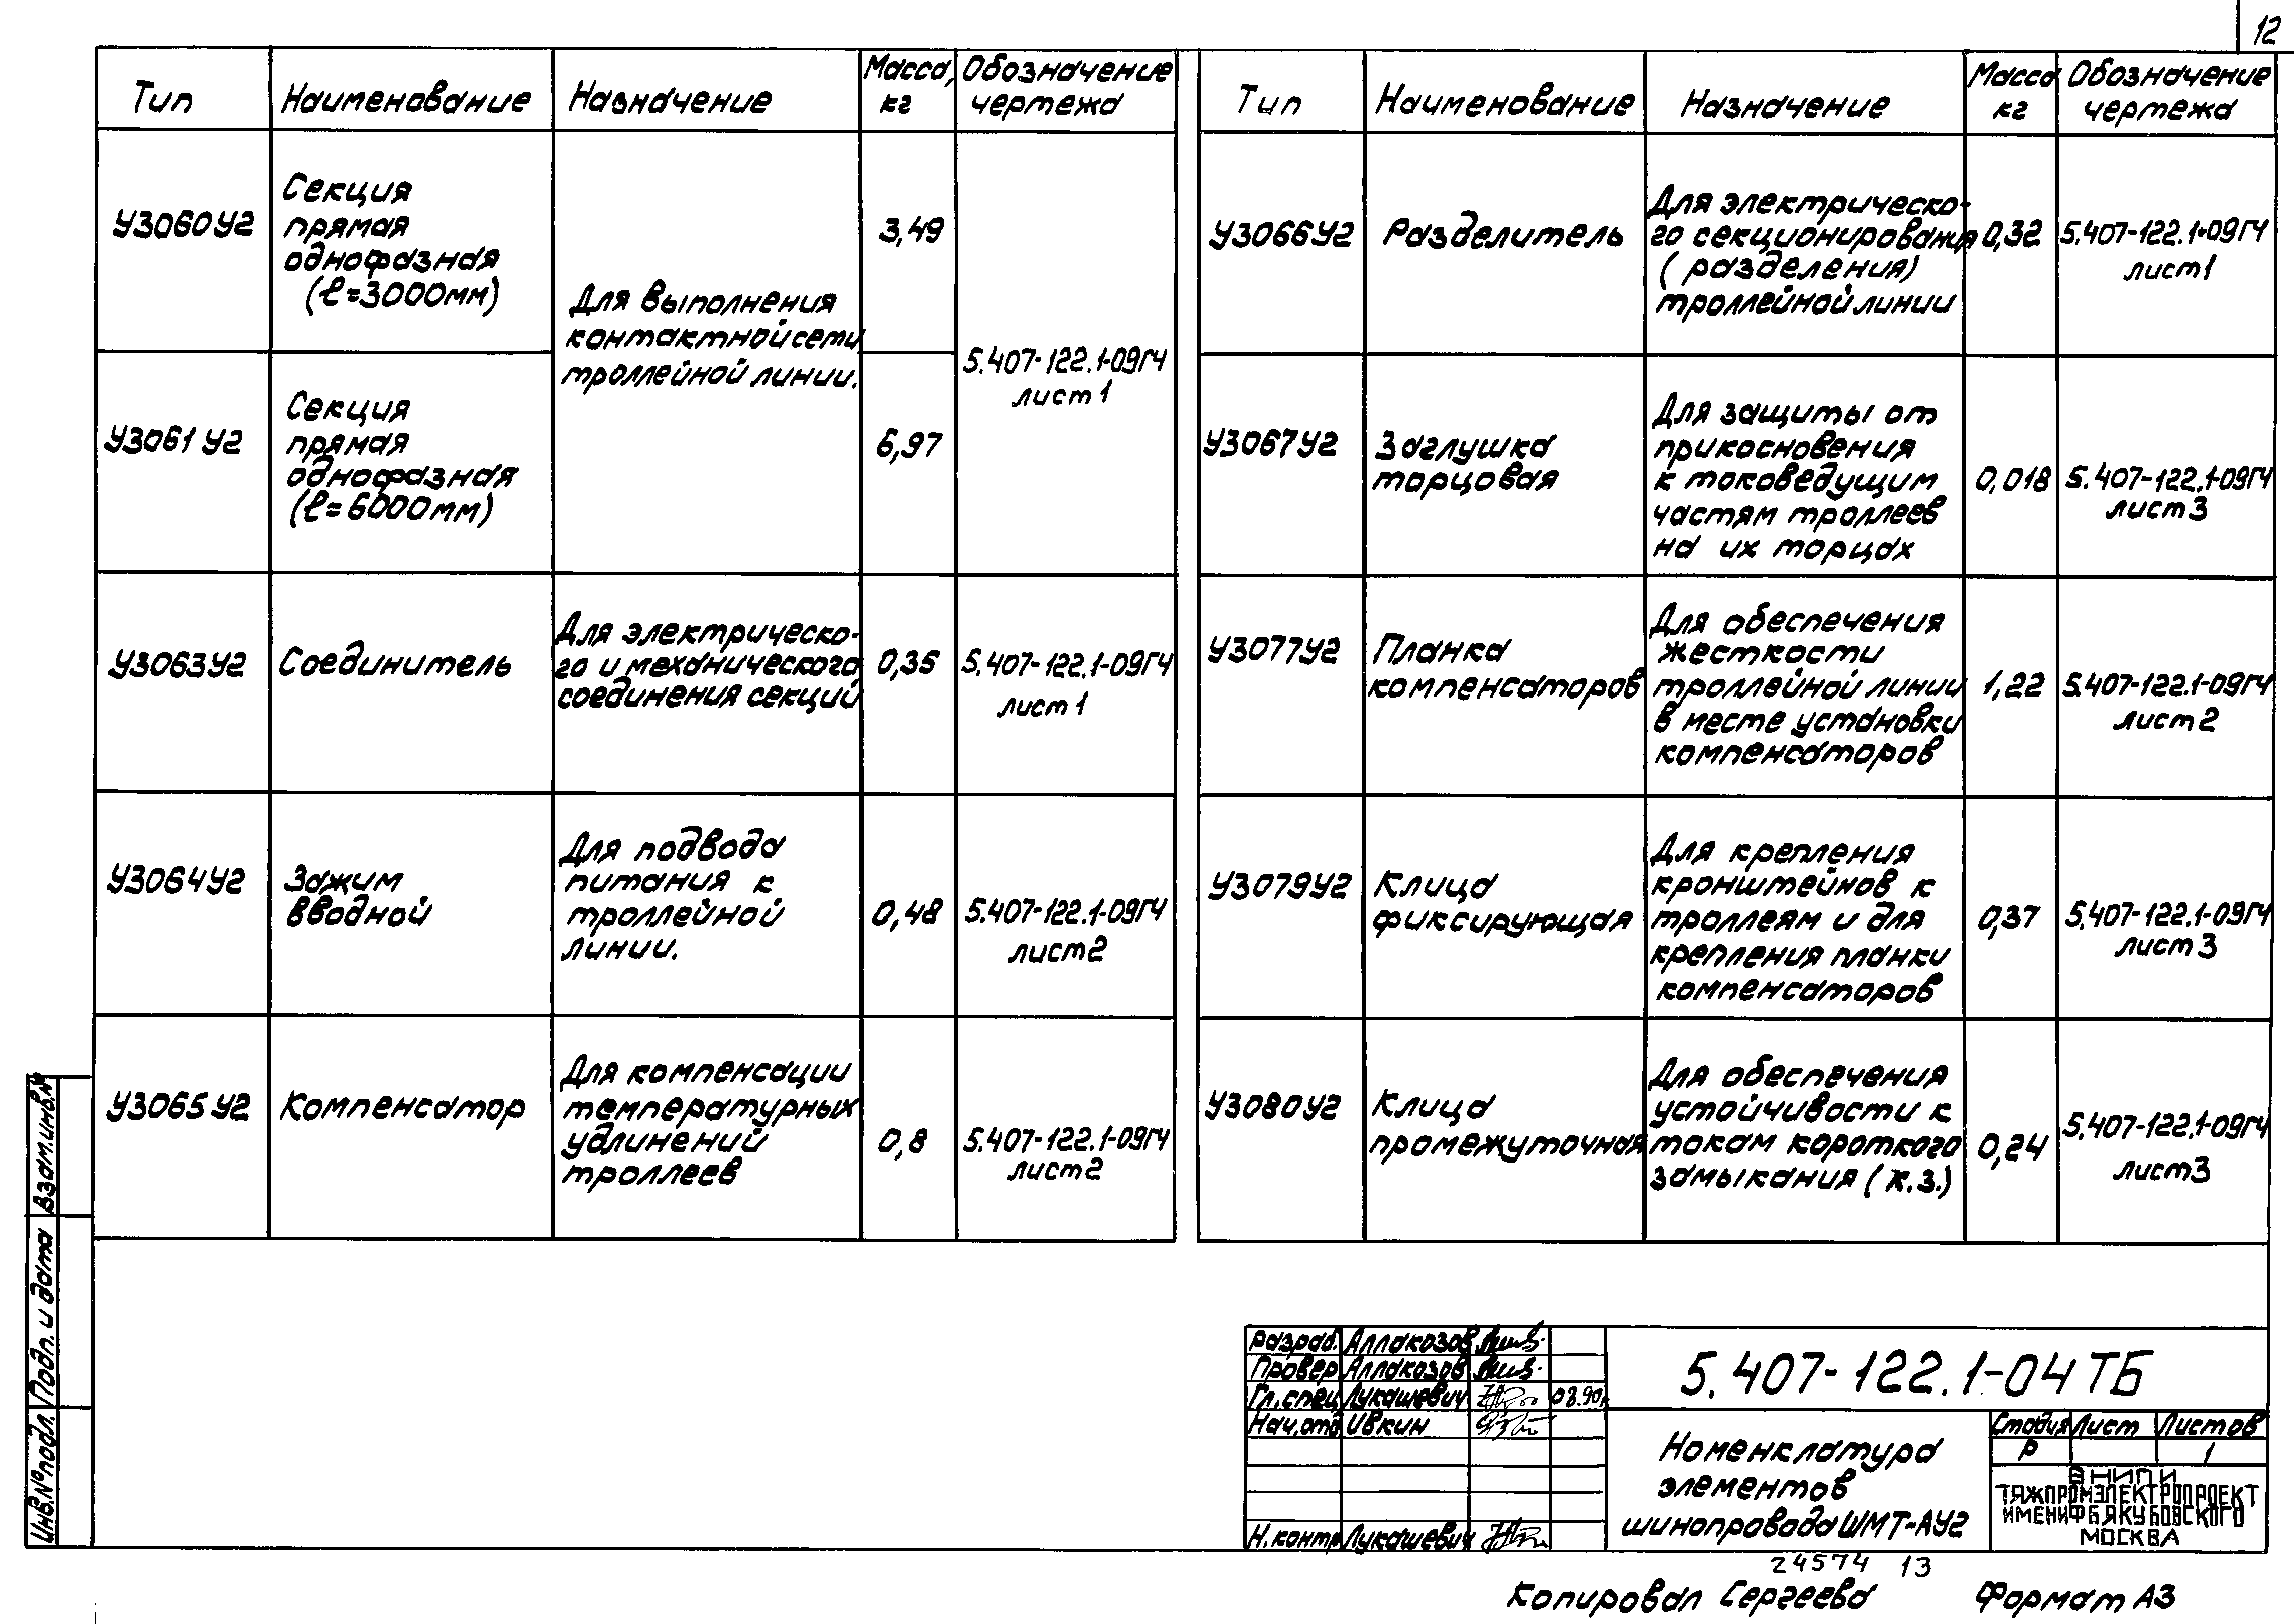 12
Тип Наименование Назначение Масса, кг Обозначение чертежа
У3060У2
Секция
прямая
однофазная
(ℓ=3000мм)
Для выполнения
контактной сети
троллейной линии.
3,49
5.407-122.1-09ГЧ
лист 1
У3061У2
Секция
прямая
однофазная
(ℓ=6000мм)
6,97
У3063У2
Соединитель
Для электрическо-
го и механического
соединения секций
0,35
5.407-122.1-09ГЧ
лист 1
У3064У2
Зажим
вводной
Для подвода
питания к
троллейной
линии.
0,48
5.407-122.1-09ГЧ
лист 2
У3065У2
Компенсатор
Для компенсации
температурных
удлинений
троллеев
0,8
5.407-122.1-09ГЧ
лист 2
Тип Наименование Назначение Масса кг Обозначение чертежа
У3066У2
Разделитель
Для электрическо-
го секционирования
(разделения)
троллейной линии
0,32
5.407-122.1-09ГЧ
лист 1
У3067У2
Заглушка
торцовая
Для защиты от
прикосновения
к токоведущим
частям троллеев
на их торцах
0,018
5.407-122.1-09ГЧ
лист 3
У3077У2
Планка
компенсаторов
Для обеспечения
жесткости
троллейной линии
в месте установки
компенсаторов
1,22
5.407-122.1-09ГЧ
лист 2
У3079У2
Клица
фиксирующая
Для крепления
кронштейнов к
троллеям и для
крепления планки
компенсаторов
0,37
5.407-122.1-09ГЧ
лист 3
У3080У2
Клица
промежуточная
Для обеспечения
устойчивости к
токам короткого
замыкания (к.з.)
0,24
5.407-122.1-09ГЧ
лист 3
Взам.инв.№
Подп. и дата
Инв.№подл.
Разраб. Аллакозов
Провер Аллакозов
Гл.спец Лукашевич 03.90г
Нач.отд Ивкин
Н.контр Лукашевич
5.407-122.1-04ТБ
Номенклатура
элементов
шинопровода ШМТ-АУ2
Стадия Лист Листов
Р 1
ВНИПИ
ТЯЖПРОМЭЛЕКТРОПРОЕКТ
ИМЕНИ Ф Б ЯКУБОВСКОГО
МОСКВА
24574 13
Копировал Сергеева Формат А3